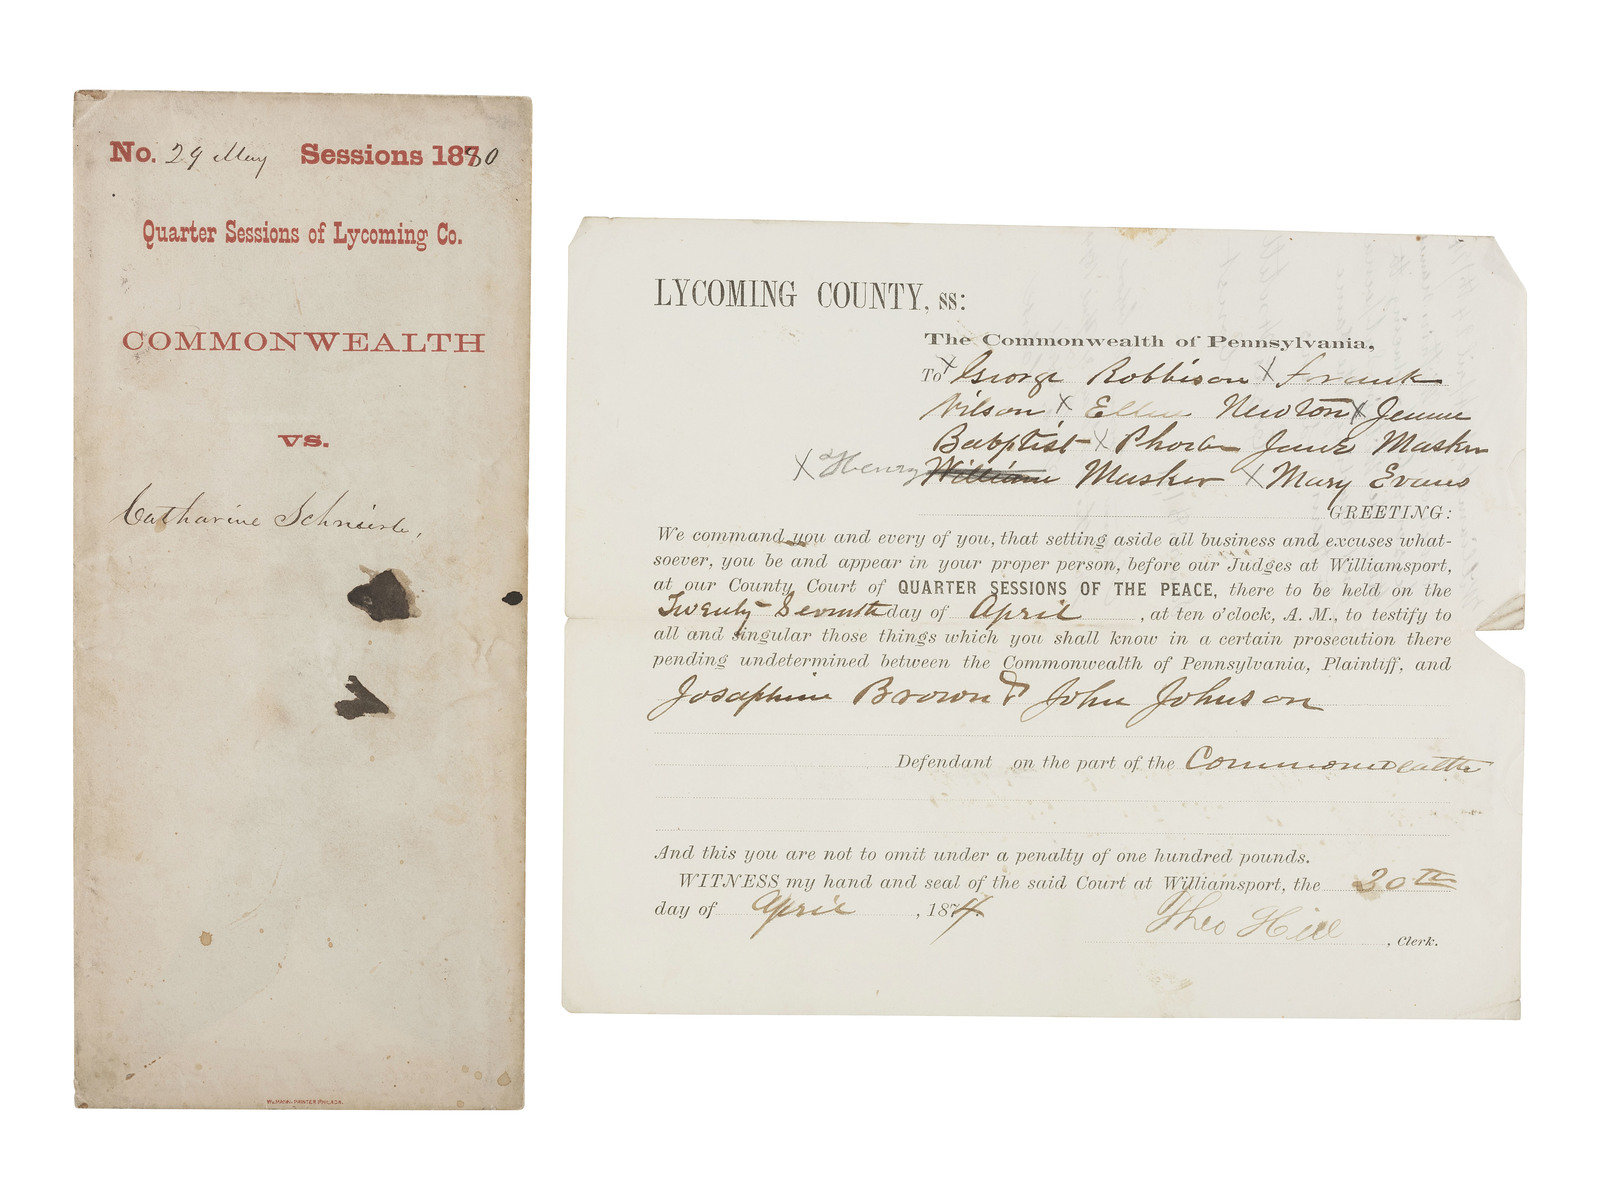 No. 29 May Sessions 1880
Quarter Sessions of Lycoming Co.
COMMONWEALTH
vs.
Catharine Schnierle,
WM. MANN, PRINTER PHILADA.
LYCOMING COUNTY, ss:
The Commonwealth of Pennsylvania,
To x George Robbison x Frank
Wilson x Ellen Newton x Jennie
Babptist x Phoebe Jane Masker
x Henry William Masker x Mary Evans
GREETING:
We command you and every of you, that setting aside all business and excuses what-
soever, you be and appear in your proper person, before our Judges at Williamsport,
at our County Court of QUARTER SESSIONS OF THE PEACE, there to be held on the
Twenty Seventh day of April, at ten o'clock, A. M., to testify to
all and singular those things which you shall know in a certain prosecution there
pending undetermined between the Commonwealth of Pennsylvania, Plaintiff, and
Josephine Brown & John Johnson
Defendant on the part of the Commonwealth
And this you are not to omit under a penalty of one hundred pounds.
WITNESS my hand and seal of the said Court at Williamsport, the 20th
day of April, 1874
Theo Hill, Clerk.